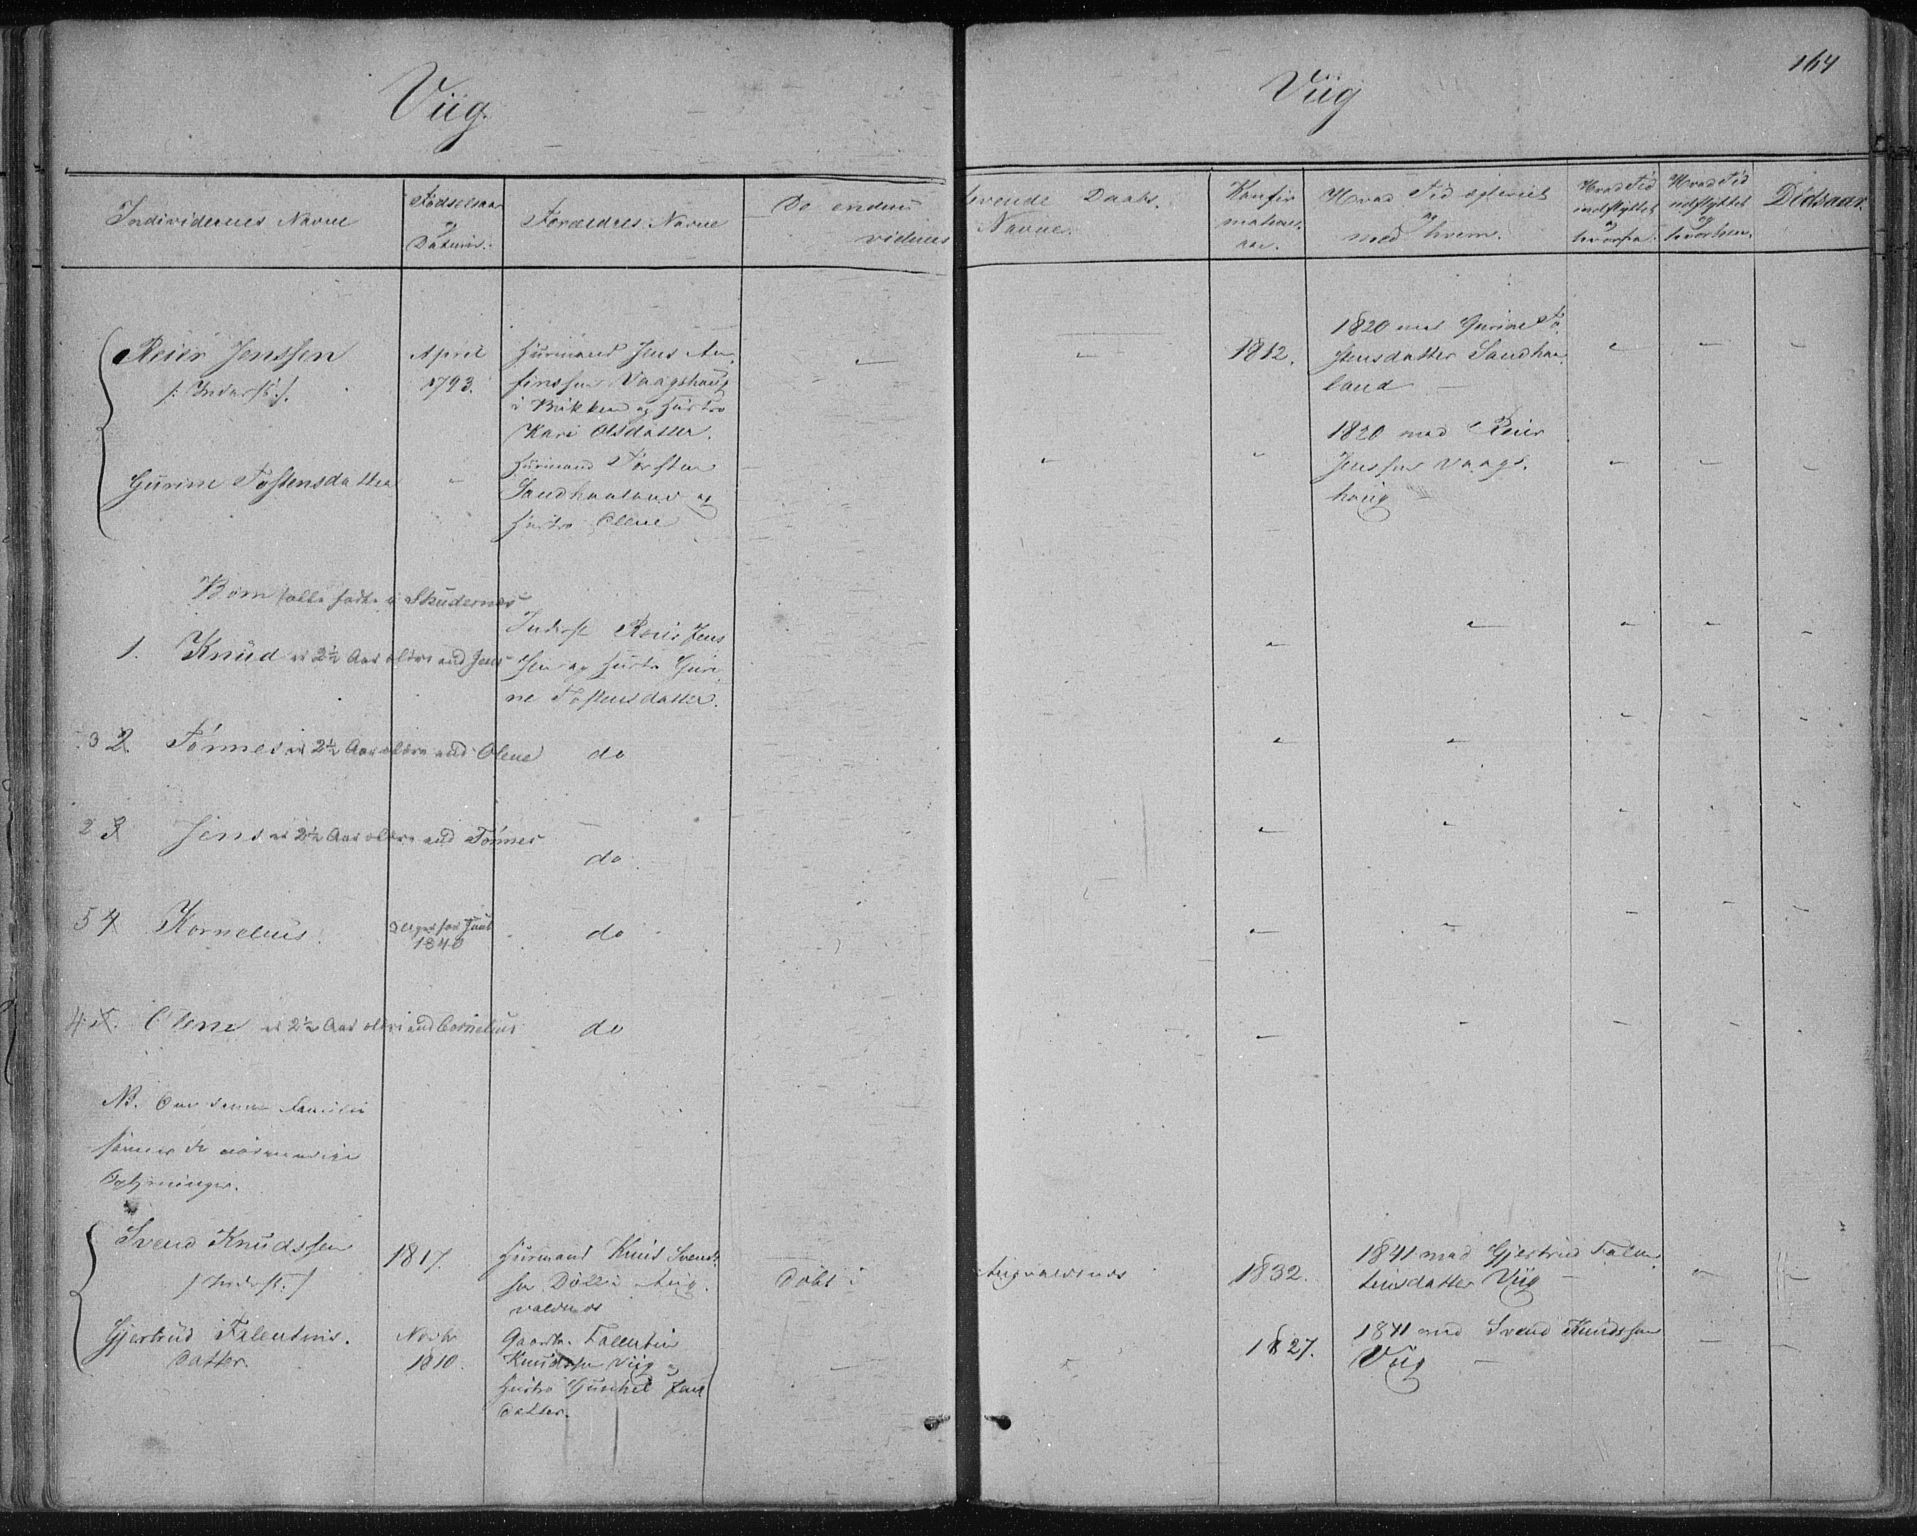 164
Viig.
Viig
Individernes Navne
Fødselsaar
og
Datum.
Forældres Navne
De endnu
videnes
levende Daabs.
Navne.
Konfir
mations
aar.
Hvad Tid egteviet
og
med hvem.
Hvad Tid
indflyttet
og
hvorfra.
Hvad Tid
udflyttet
og
hvorhen.
Dødsaar.
Reier Jenssen
/: Inderst :/.
April
1793.
Huusmand Jens An
finssen Vaagshaug
i Bukken og Hustro
Kari Olsdatter.
1812.
1820 med Gurine To
stensdatter Sandhaa
land
Gurine Tostensdatter
Huusmand Torsten
Sandhaaland og
Hustro Olene
1820 med Reier
Jenssen Vaags
haug
Børn /alle fødte i Skudernes
1. Knud er 2½ Aar ældre end Jens
Inderst Reier Jens
sen og Hustr Guri
ne Tostensdatter.
3 2 Tønnes er 2½ Aar ældre end Olene do
2 3 Jens er 2½ Aar ældre end Tønnes do
5 4 Kornelius. Uger før Juul
1840 do
4 5. Olene er 2½ Aar ældre end Cornelius do
NB. Om denne Familie
savnes de nødvendige
Oplysninger.
Svend Knudssen
/Inderst./
1817.
Huusmand Knud Svend
sen Dølle Aug
valdnes
Døbt i
Augvaldsnes
1832.
1841 med Gjertrud Falen
tinsdatter Viig
Gjertrud Falentins.
datter.
Novbr
1810.
Gaardbr. Falentin
Knudssen Viig og
Hustro Gunhil Jens
datter.
1827.
1841 med Svend Knudssen
Viig